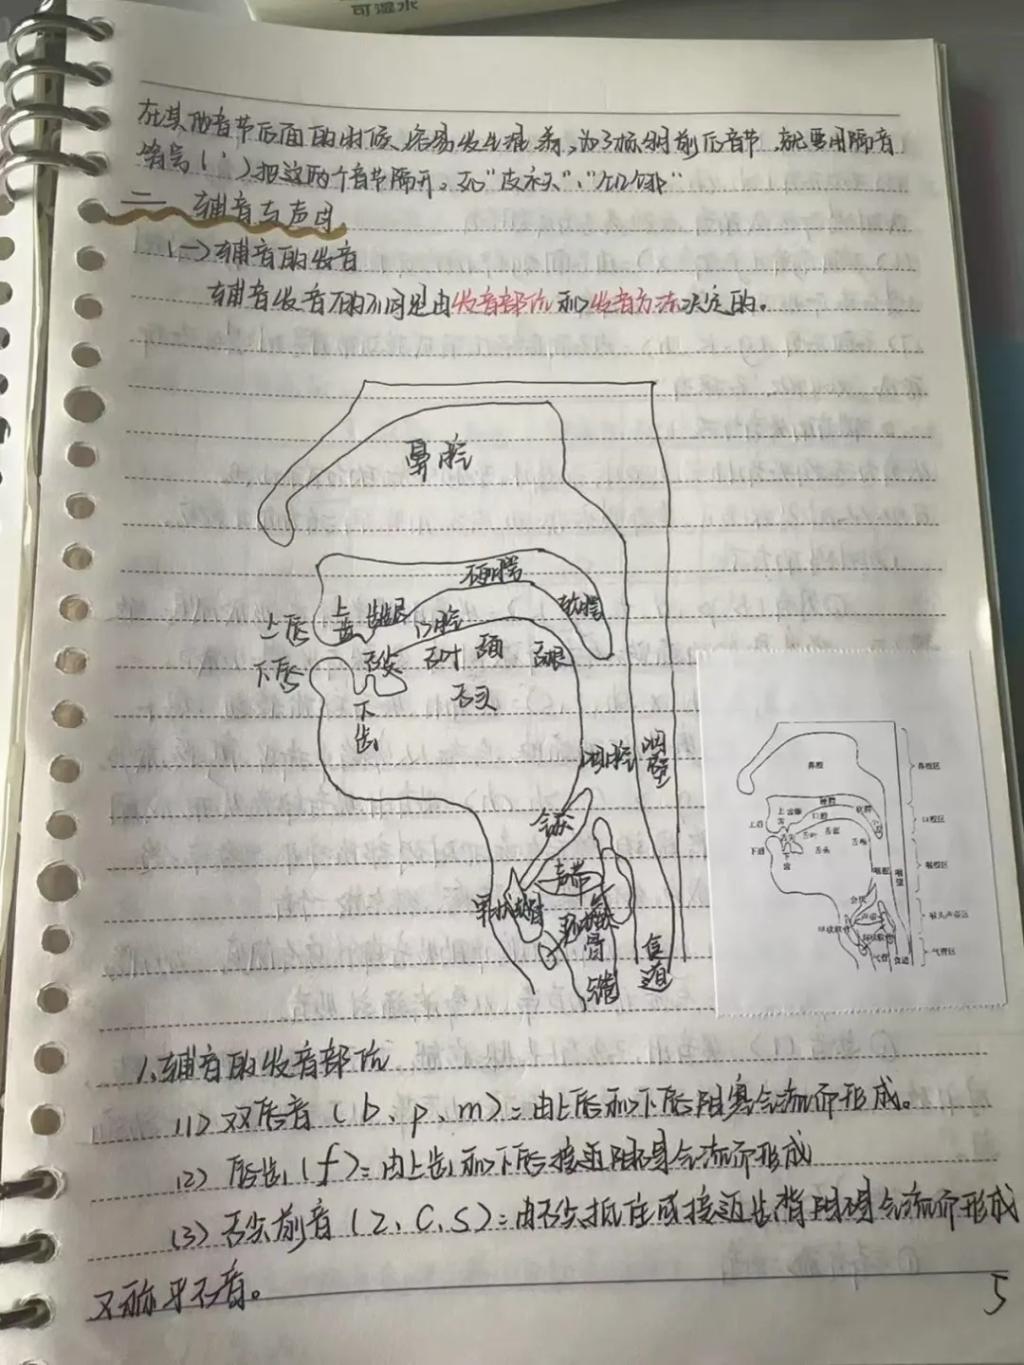 可湿水
在其他音节后面的时候、容易发生混淆,为了标明前后音节,就要用隔音
符号(')把这两个音节隔开。如"皮袄"、
二 辅音与声母
(一)辅音的发音
辅音发音的不同是由发音部位和发音方法决定的。
鼻腔
硬腭
软腭
上齿 齿龈 口腔
上唇
下唇
舌尖 舌叶 舌面 舌根
舌头
下齿
咽腔 咽壁
会厌
声带
甲状软骨
环状软骨
气管
食道
鼻腔
鼻腔区
硬腭
软腭
上齿 齿龈 口腔
小舌
口腔区
上唇
舌尖 舌叶 舌面 舌根
下唇
舌头
下齿
咽腔 咽壁
咽腔区
会厌
声带
喉头声带区
甲状软骨
环状软骨
气管 食道
气管区
1、辅音的发音部位
(1)双唇音(b、p、m)=由上唇和下唇阻塞气流而形成。
(2)唇齿(f)=由上齿和下唇接近阻碍气流而形成
(3)舌尖前音(z、c、s)=由舌尖抵住或接近齿背阻碍气流而形成
又称平舌音。
5